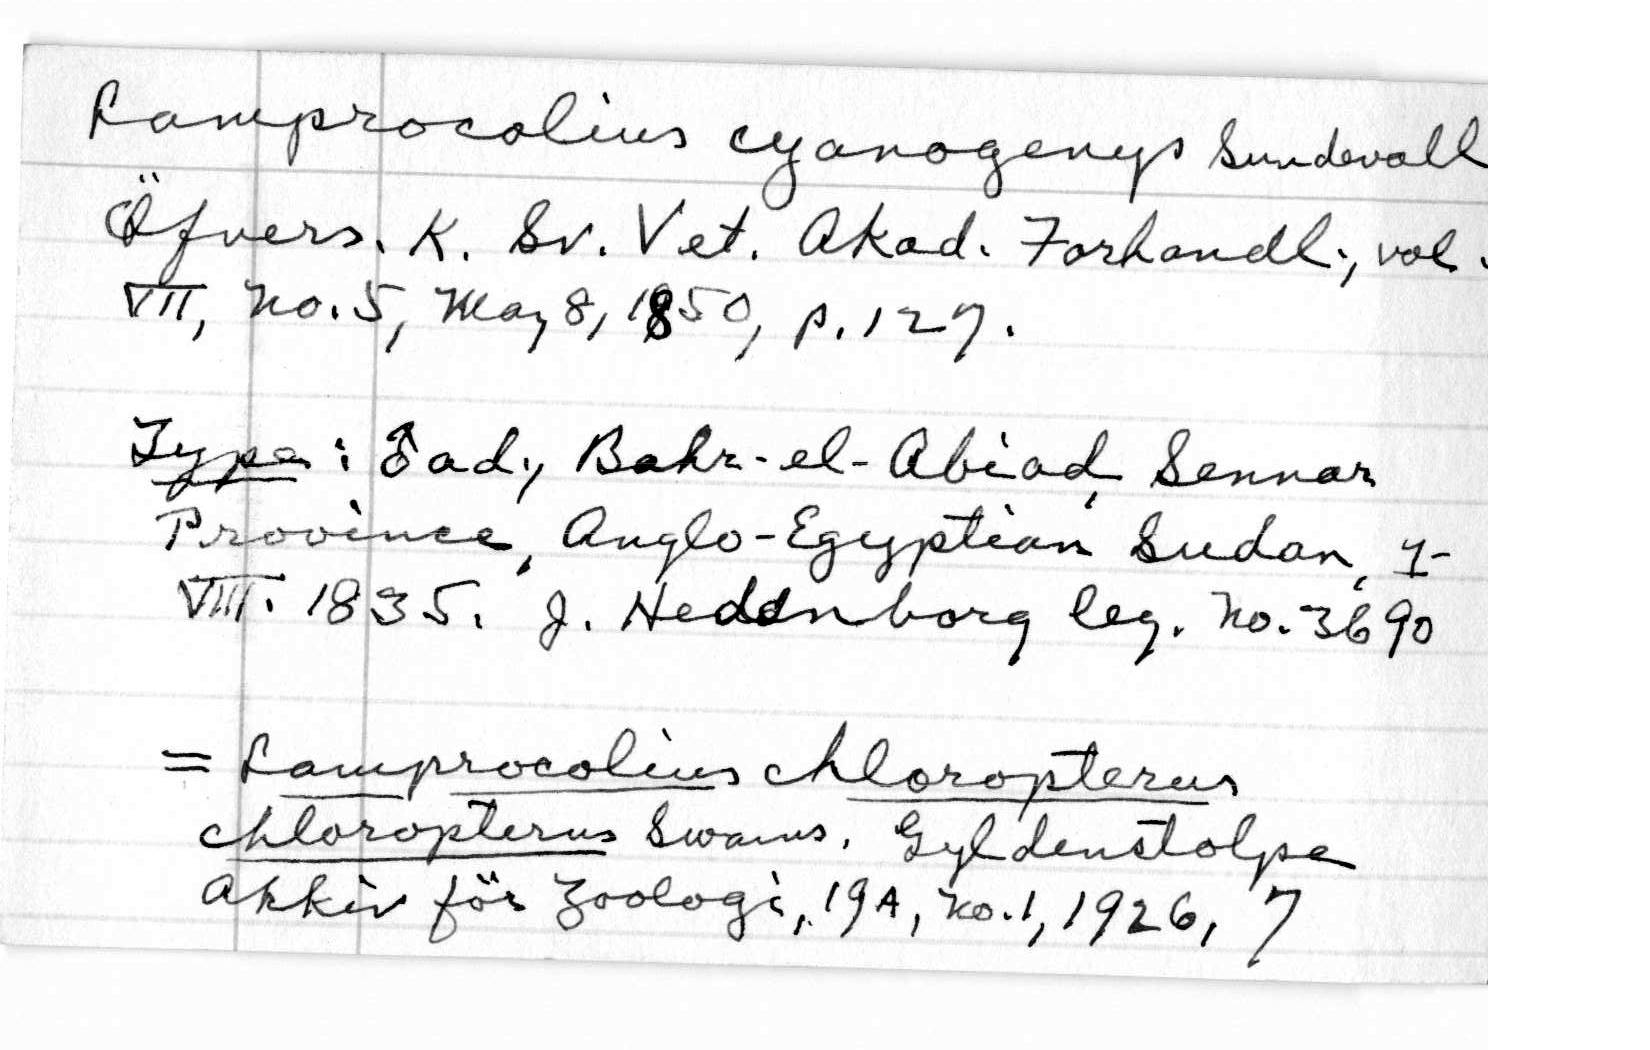 Lamprocolius cyanogenys Sundevall
Öfvers. K. Sv. Vet. Akad. Forhandl., vol.
VII, No. 5, May 8, 1850, p. 127.
Type: ♂ ad., Bahr-el-Abiad, Sennar
Province, Anglo-Egyptian Sudan, 1-
VIII. 1835. J. Hedenborg leg. No. 3690
= Lamprocolius chloropterus
chloropterus Swains. Gyldenstolpe
Arkiv för Zoologi, 19A, No. 1, 1926, 7